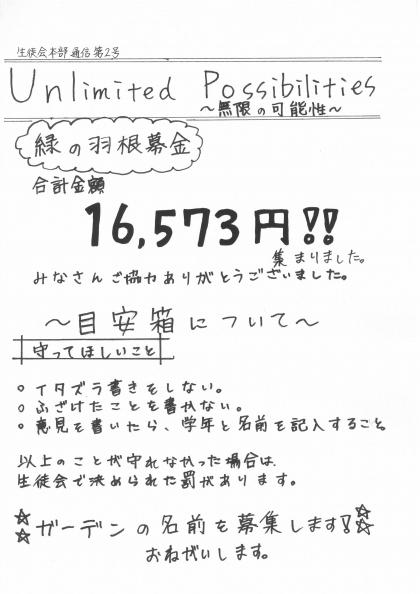 生徒会本部通信第2号
Unlimited Possibilities
～無限の可能性～
緑の羽根募金
合計金額
16,573円!!
集まりました。
みなさんご協力ありがとうございました。
～目安箱について～
守ってほしいこと
○イタズラ書きをしない。
○ふざけたことを書かない。
○意見を書いたら、学年と名前を記入すること。
以上のことが守れなかった場合は、
生徒会で決められた罰があります。
☆☆ガーデンの名前を募集します!☆☆
おねがいします。